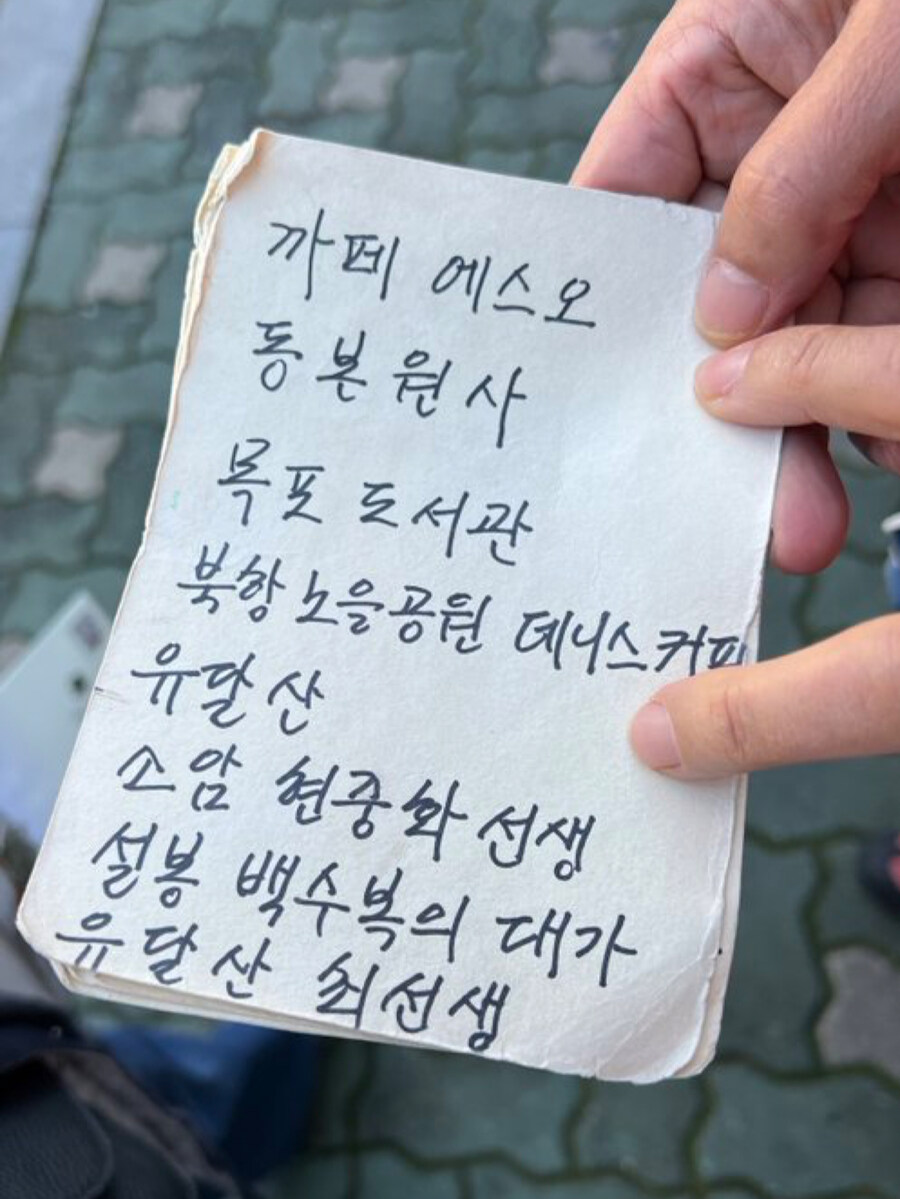 까페 에스오
동본원사
목포 도서관
북항 노을공원 데니스커피
유달산
소암 현중화 선생
설봉 백수복의 대가
유달산 최선생